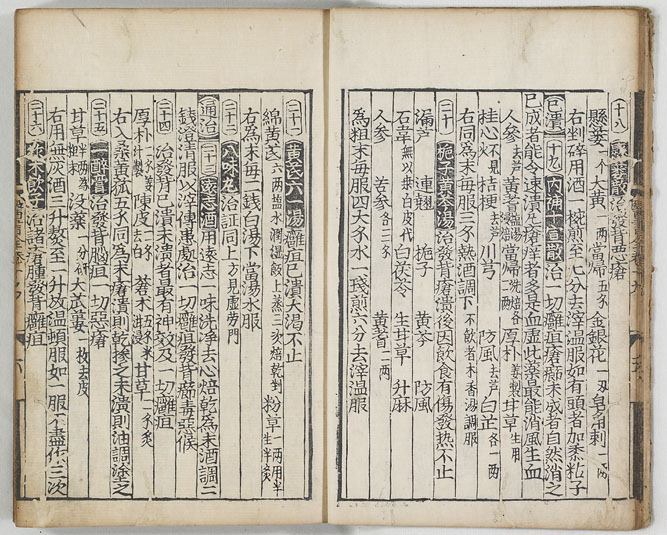 十八 瓜蔞散 治發背惡瘡
懸蔞一个 大黃一兩 當歸五錢 金銀花一兩 皂角刺一兩
右剉碎用酒一椀煎至七分去滓温服如有頭者加黍粘子
已潰 十九 內補十宣散 治一切癰疽瘡癤未成者自然消之
已成者能令速潰凡瘡痒者多是血虛此藥最能消風生血
人參去芦 黃芪塩湯 當歸洗焙各二兩 厚朴姜製 甘草生用
桂心不見火 桔梗去芦 川芎 防風去芦 白芷各一兩
右同為末每服三錢熱酒調下不飲者木香湯調服
二十 梔子黃芩湯 治發背瘡潰後因飲食有傷發熱不止
漏芦 連翹 梔子 黃芩 防風
石韋無以桑白皮代 白茯苓 生甘草 升麻
人參 苦參各二錢 黃芪一兩
為粗末每服四大錢水一盞煎六分去滓温服
二十一 黃芪六一湯 癰疽已潰大渴不止
綿黃芪六兩塩水潤温飯上蒸三次焙乾剉 粉草一兩用半生半炙
右為末每二錢白湯下當湯水服
二十二 八味丸 治証同上方見虛労門
通治 二十三 遠志酒 用遠志一味洗淨去心焙乾為末酒調二
錢澄清服以滓傅患處治一切癰疽發背癤毒惡候
二十四 治發背已潰未潰者最有神效及一切癰疽
厚朴二錢姜汁製 陳皮去白 蒼朮五錢米泔浸 甘草一錢炙
右入桑黃菰五錢同為末瘡潰則乾摻之未潰則油調塗之
二十五 一醉膏 治發背腦疽一切惡瘡
甘草半兩為粗末 沒藥一分研 大芄蔞一枚去皮
右用無灰酒三升熬至一升放温頓服如一服不盡作三次
二十六 朮飲子 治諸瘡腫發背癰疽